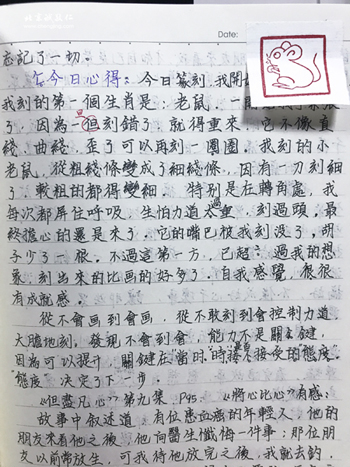 Date:
忘記了一切。
今日心得:今日篆刻,我開
我刻的第一個生肖是:老鼠,一
了,因為一旦刻錯了,就得重來,它不像直
綫、曲綫,歪了可以再刻一圈圈,我刻的小
老鼠,從粗綫條變成了細綫條,因有一刀刻細
了,較粗的都得變細。特別是在轉角處,我
每次都屏住呼吸,生怕力道太重,刻過頭,最
終擔心的還是來了,它的嘴巴被我刻沒了,胡
子少了一根。不過這第一方,已超過我的想
象,刻出來的比画的好多了,自我感覺,很很
有成就感。
從不會画到會画,從不敢刻到會控制力道
大膽地刻,發現不會到會,能力不是關鍵,
因為可以提升,關鍵在當時接受的態度。
態度,決定了下一步。
第九集 P95 《將心比心》有感:
故事中叙述道,有位患血癌的年輕人,他的
朋友來看他之後,他向醫生懺悔一件事:那位朋
友以前常放生,可我待他放完之後,我就去釣,